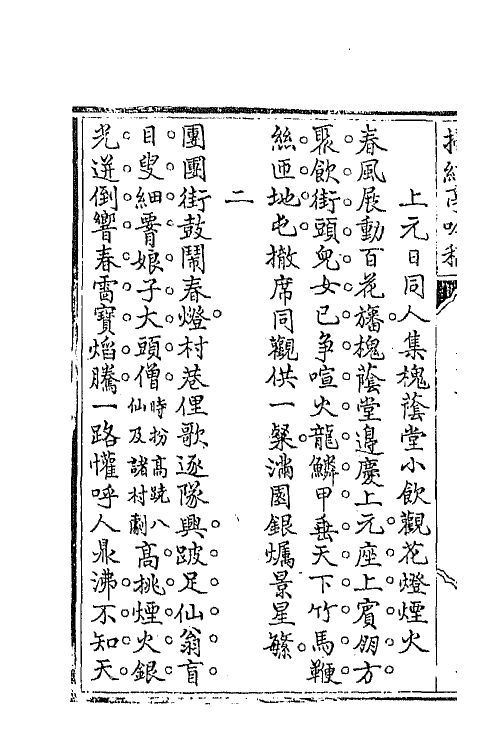 上元日同人集槐蔭堂小飲觀花燈煙火
春風展動百花旛槐蔭堂邊慶上元座上賓朋方
聚飲街頭兒女已爭喧火龍鱗甲垂天下竹馬鞭
絲匝地屯撤席同觀供一粲滿園銀爥景星繁
二
團團街鼓鬧春燈村巷俚歌逐隊興跛足仙翁盲
目叟細霤娘子大頭僧時扮高蹺八仙及諸村劇高挑煙火銀
光迸倒響春雷寶焰騰一路懽呼人鼎沸不知天